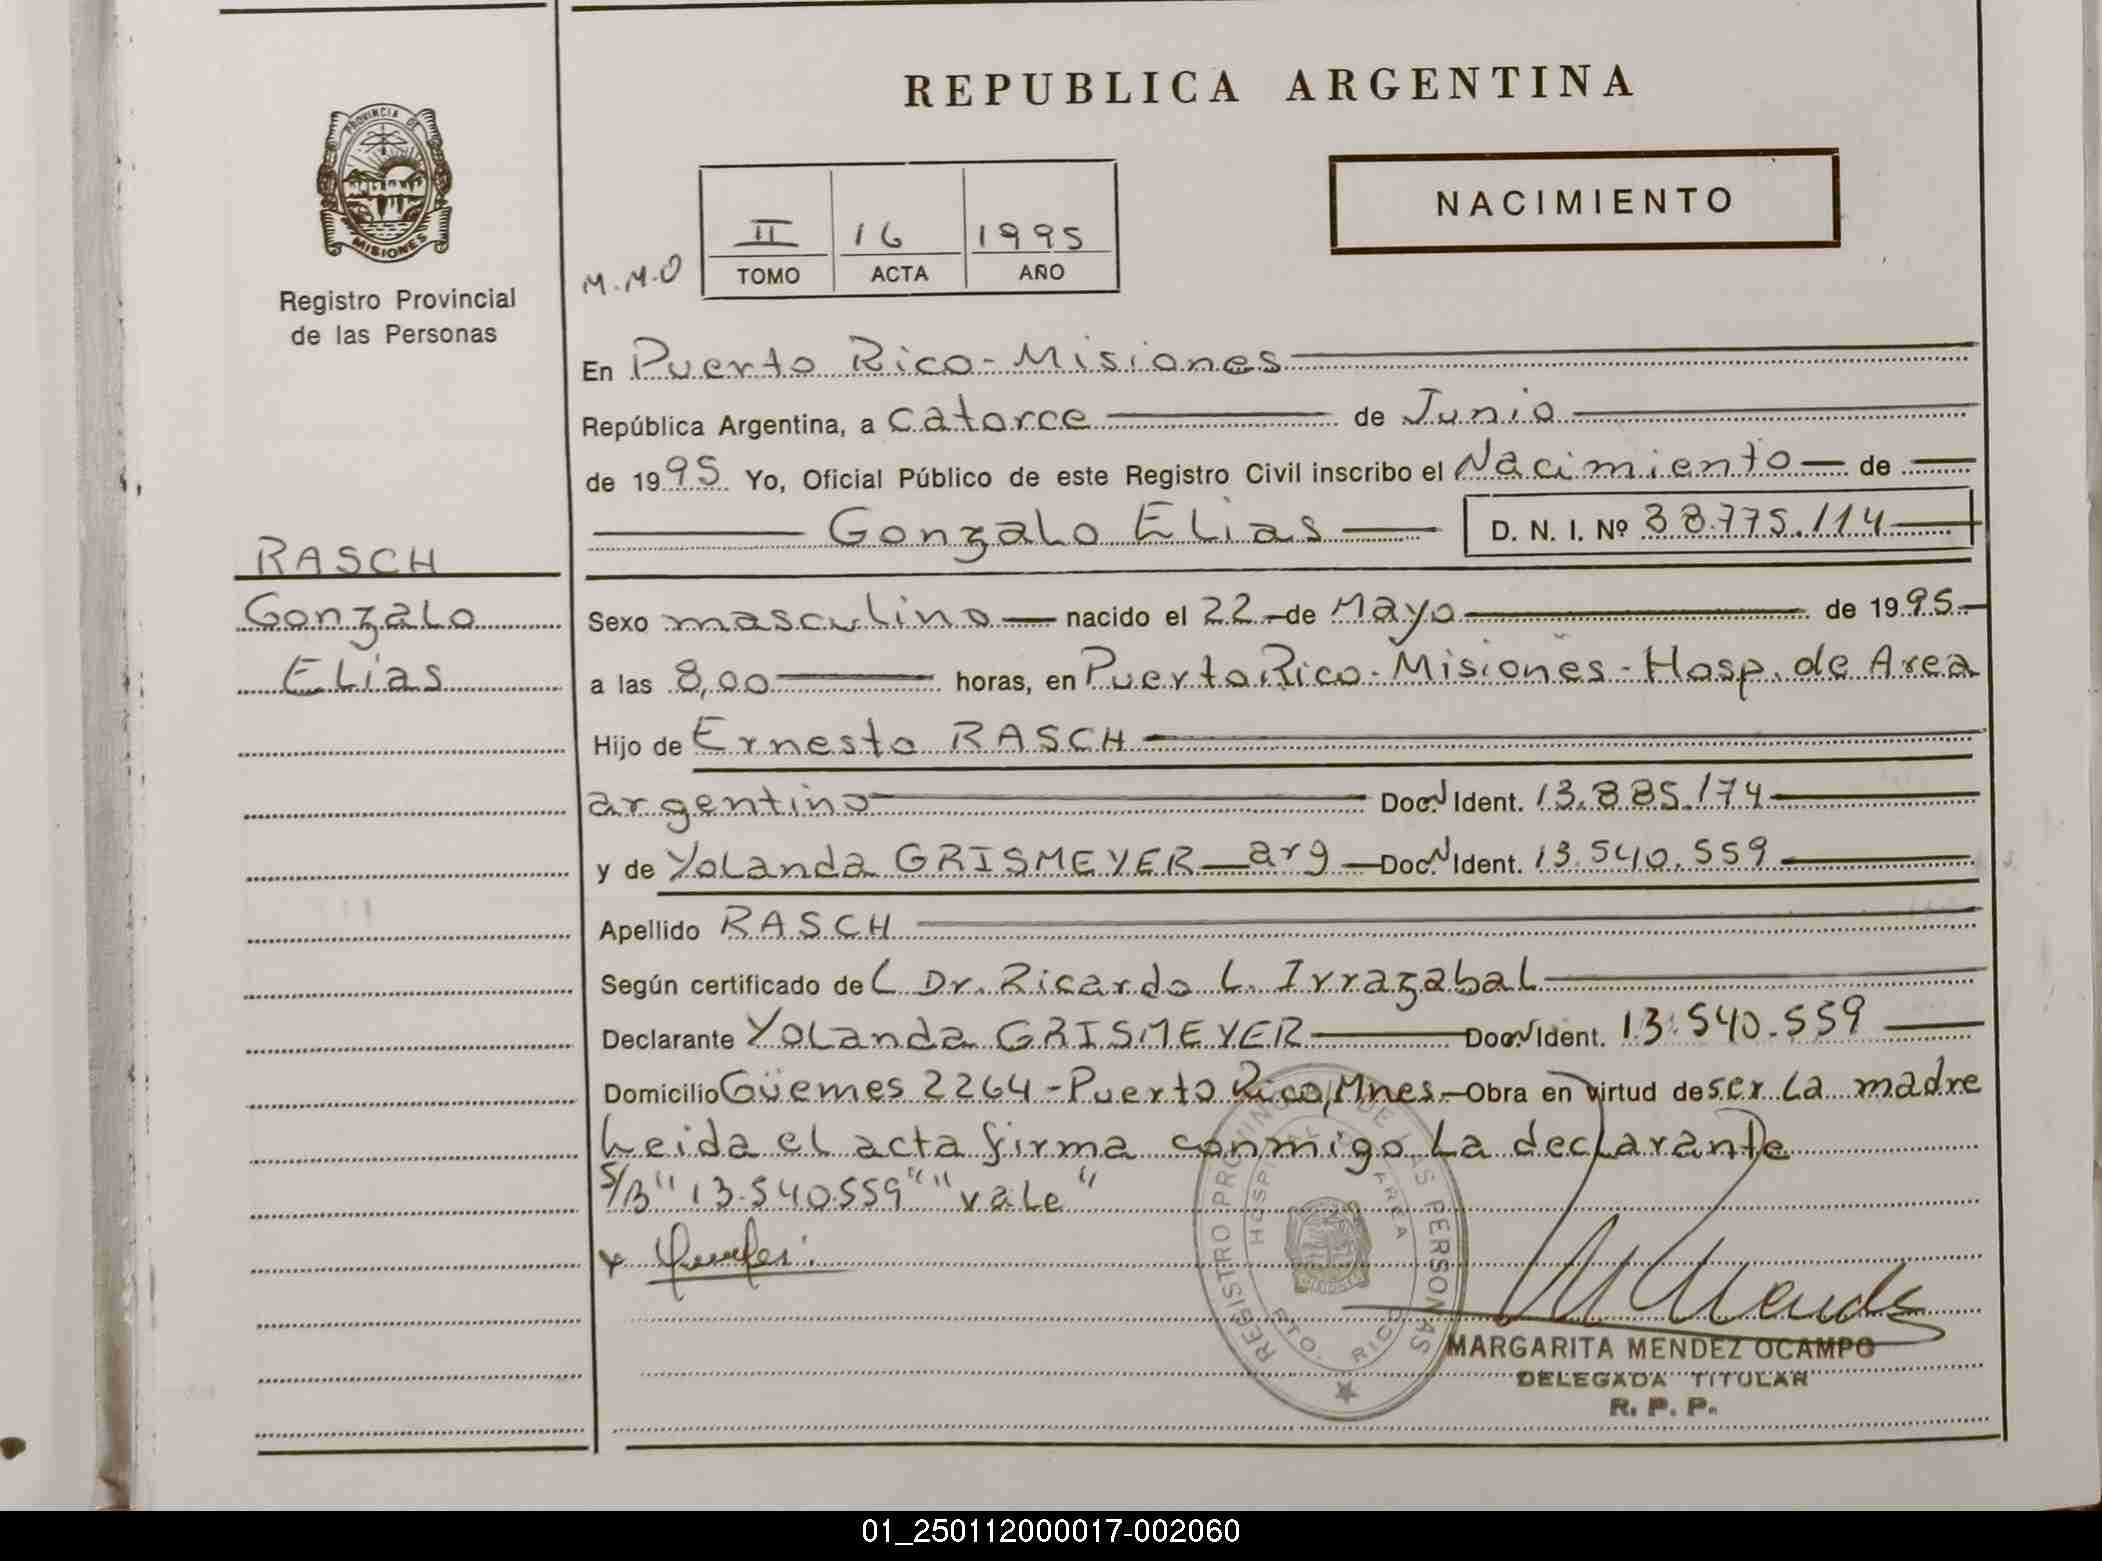 REPUBLICA ARGENTINA
PROVINCIA DE
MISIONES
Registro Provincial
de las Personas
NACIMIENTO
II 16 1995
TOMO ACTA AÑO
M.M.O
En Puerto Rico - Misiones
República Argentina, a catorce de Junio
de 1995 Yo, Oficial Público de este Registro Civil inscribo el Nacimiento de
Gonzalo Elias D. N. I. Nº 38.775.114
RASCH
Gonzalo
Elias
Sexo masculino nacido el 22 de Mayo de 1995
a las 8,00 horas, en Puerto Rico - Misiones - Hosp. de Area
Hijo de Ernesto RASCH
argentino Doc. N Ident. 13.885.174
y de Yolanda GRISMEYER arg Doc. N Ident. 13.540.559
Apellido RASCH
Según certificado del Dr. Ricardo L. Irrazabal
Declarante Yolanda GRISMEYER Doc. N Ident. 13.540.559
Domicilio Güemes 2264 - Puerto Rico, Mnes. Obra en virtud de ser la madre
Leida el acta firma conmigo la declarante
S/B "13.540.559" "vale"
REGISTRO PROVINCIAL DE LAS PERSONAS
HOSPITAL AREA
PTO. RICO
MARGARITA MENDEZ OCAMPO
DELEGADA TITULAR
R. P. P.
01_250112000017-002060